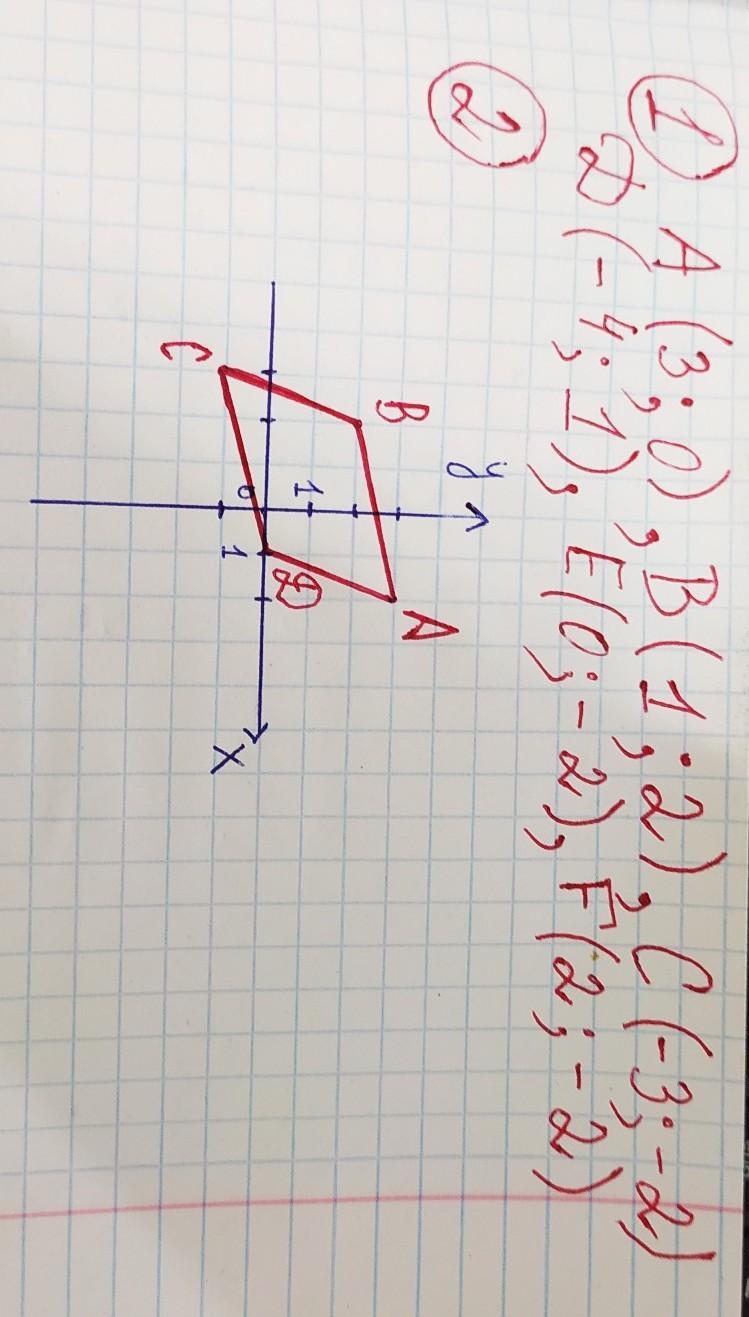 ① A (3; 0), B (1; 2), C (-3; -2)
D (-4; 1), E (0; -2), F (2; -2)
②
y
A
B
1
0
1
D
x
C